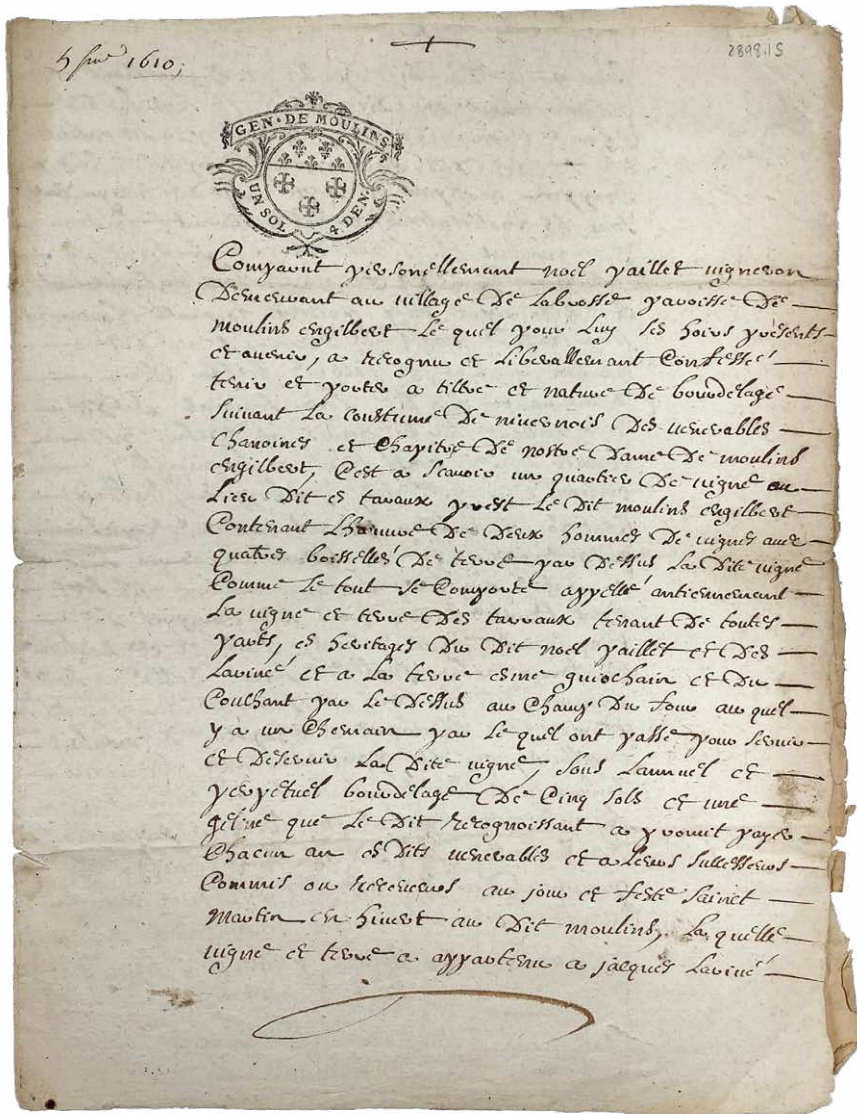 1610
2898.15
GEN · DE MOULINS
UN SOL 4 DEN.
Comparut personellemant noel paillet vigneron
Demeurant au village De Labrosse paroisse De
moulins engilbert Le quel pour Luy ses hoirs presents
et avenir, a recognu et Liberallemant Confessé
tenir et porter a tiltre et nature De bourdelage
suivant La coustume De nivernois Des venerables
Chanoines et Chapitre De nostre Dame De moulins
engilbert, C'est a scavoir un quartier De vigne au
Lieu Dit es taraux prest Le Dit moulins engilbert
Contenant L'heuvre De Deux hommes De vignes avec
quatres boisselleé De terre par Dessus La Dite vigne
Comme Le tout se Comporte appellé antiennemant
La vigne et terre Des tarraux tenant De toutes
parts, es heritages Du Dit noel paillet et Des
Laviné et a La terre esme guiochain et Du
Couchant par Le Dessus au Champ Du four au quel
y a un Chemain par Le quel ont passe pour servir
et Deservir La Dite vigne, sous Lannuel et
perpetuel bourdelage De Cinq sols et une
geline que Le Dit recognoissant a promit payer
Chacun an es Dits venerables et a Leurs successeurs
Commis ou receveurs au jour et feste sainct
Martin en hivert au Dit moulins, La quelle
vigne et terre a appartenu a jacques Laviné